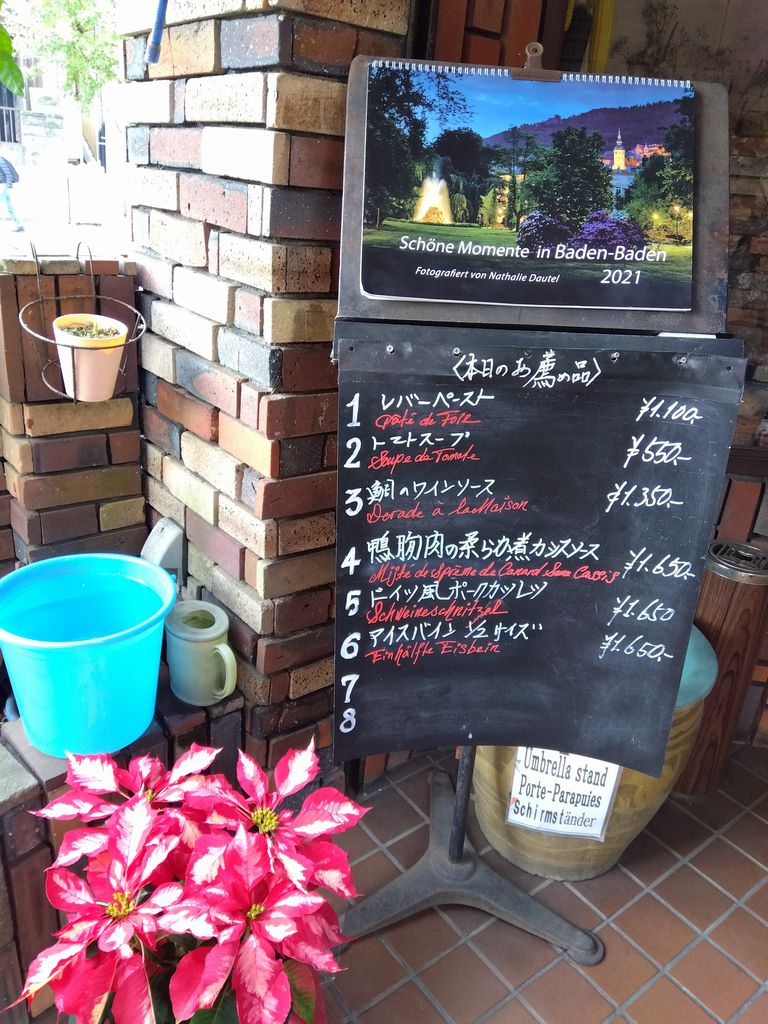 Schöne Momente in Baden-Baden
Fotografiert von Nathalie Dautel 2021
〈本日のお薦め品〉
1 レバーペースト ¥1.100.-
Paté de Foie
2 トマトスープ ¥550.-
Soupe de Tomate
3 鯛のワインソース ¥1.350.-
Dorade à la Maison
4 鴨胸肉の柔らか煮カシスソース ¥1.650.-
de Canard Cassis
5 ドイツ風ポークカツレツ ¥1.650
Schweineschnitzel
6 アイスバイン 1/2サイズ ¥1.650.-
Einhälfte Eisbein
7
8
Umbrella stand
Porte-Parapuies
Schirmständer